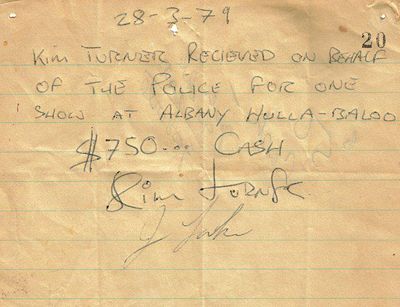 28-3-79
20
KIM TURNER RECIEVED ON BEHALF
OF THE POLICE FOR ONE
SHOW AT ALBANY HULLA-BALOO
$750... CASH
Kim Turner